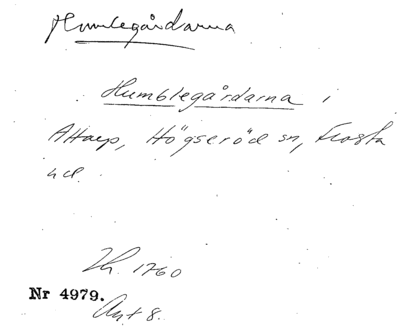 Humlegårdarna
Humblegårdarna i
Attarp, Högseröd sn, Frosta
hd.
Lh. 1760
Nr 4979.
Akt 8.